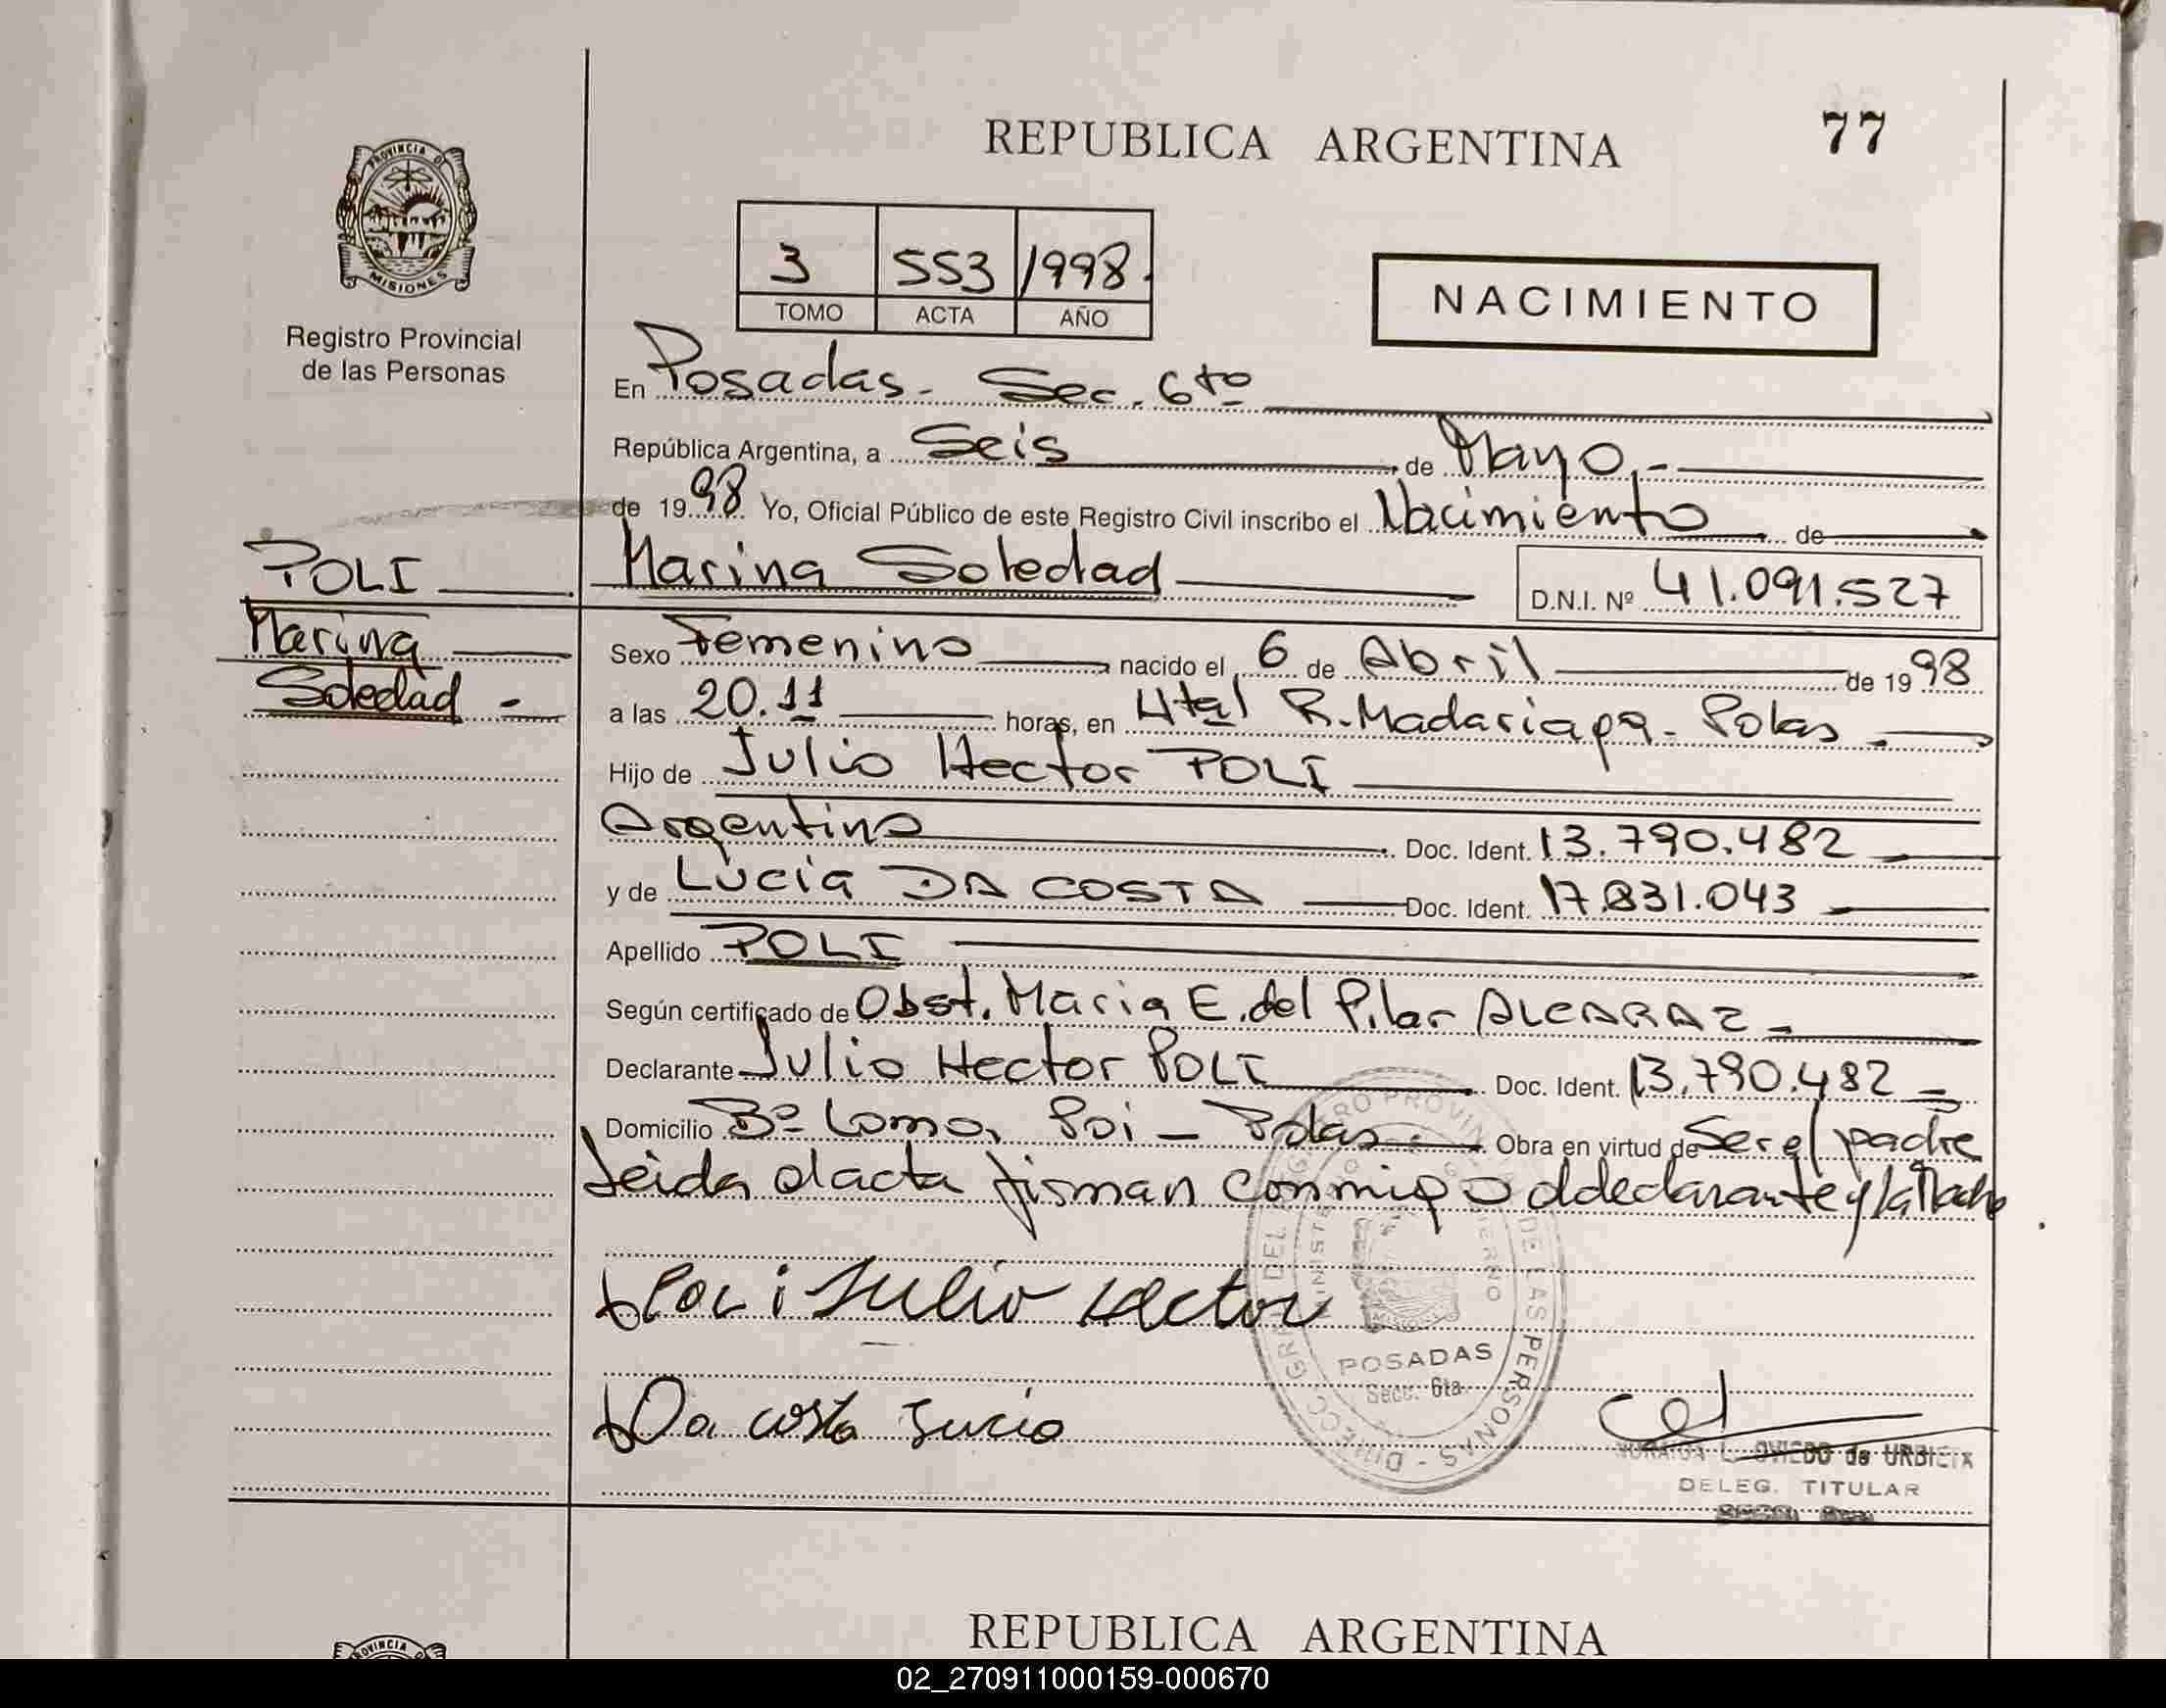 REPUBLICA ARGENTINA
77
PROVINCIA DE
MISIONES
Registro Provincial
de las Personas
3 553 1998.
TOMO ACTA AÑO
NACIMIENTO
En Posadas - Sec. 6ta
República Argentina, a Seis de Mayo.-
de 1998 Yo, Oficial Público de este Registro Civil inscribo el Nacimiento de
POLI
Marina Soledad
D.N.I. Nº 41.091.527
Marina
Soledad -
Sexo Femenino nacido el 6 de Abril de 1998
a las 20.11 horas, en Htal R. Madariaga - Pdas
Hijo de Julio Hector POLI
Argentino Doc. Ident. 13.790.482
y de Lucia DA COSTA Doc. Ident. 17.831.043
Apellido POLI
Según certificado de Obst. Maria E. del Pilar ALCARAZ
Declarante Julio Hector POLI Doc. Ident. 13.790.482
Domicilio Bº Loma Poi - Pdas Obra en virtud de Ser el padre
Leida el acta firman conmigo el declarante y la Madre
Poli Julio Hector
Da costa Lucia
DIRECC GRAL DEL REGISTRO PROVINCIAL DE LAS PERSONAS
MINISTERIO DE GOBIERNO
POSADAS
Secc. 6ta
L. OVIEDO de URBIETA
DELEG. TITULAR
REPUBLICA ARGENTINA
PROVINCIA
02_270911000159-000670